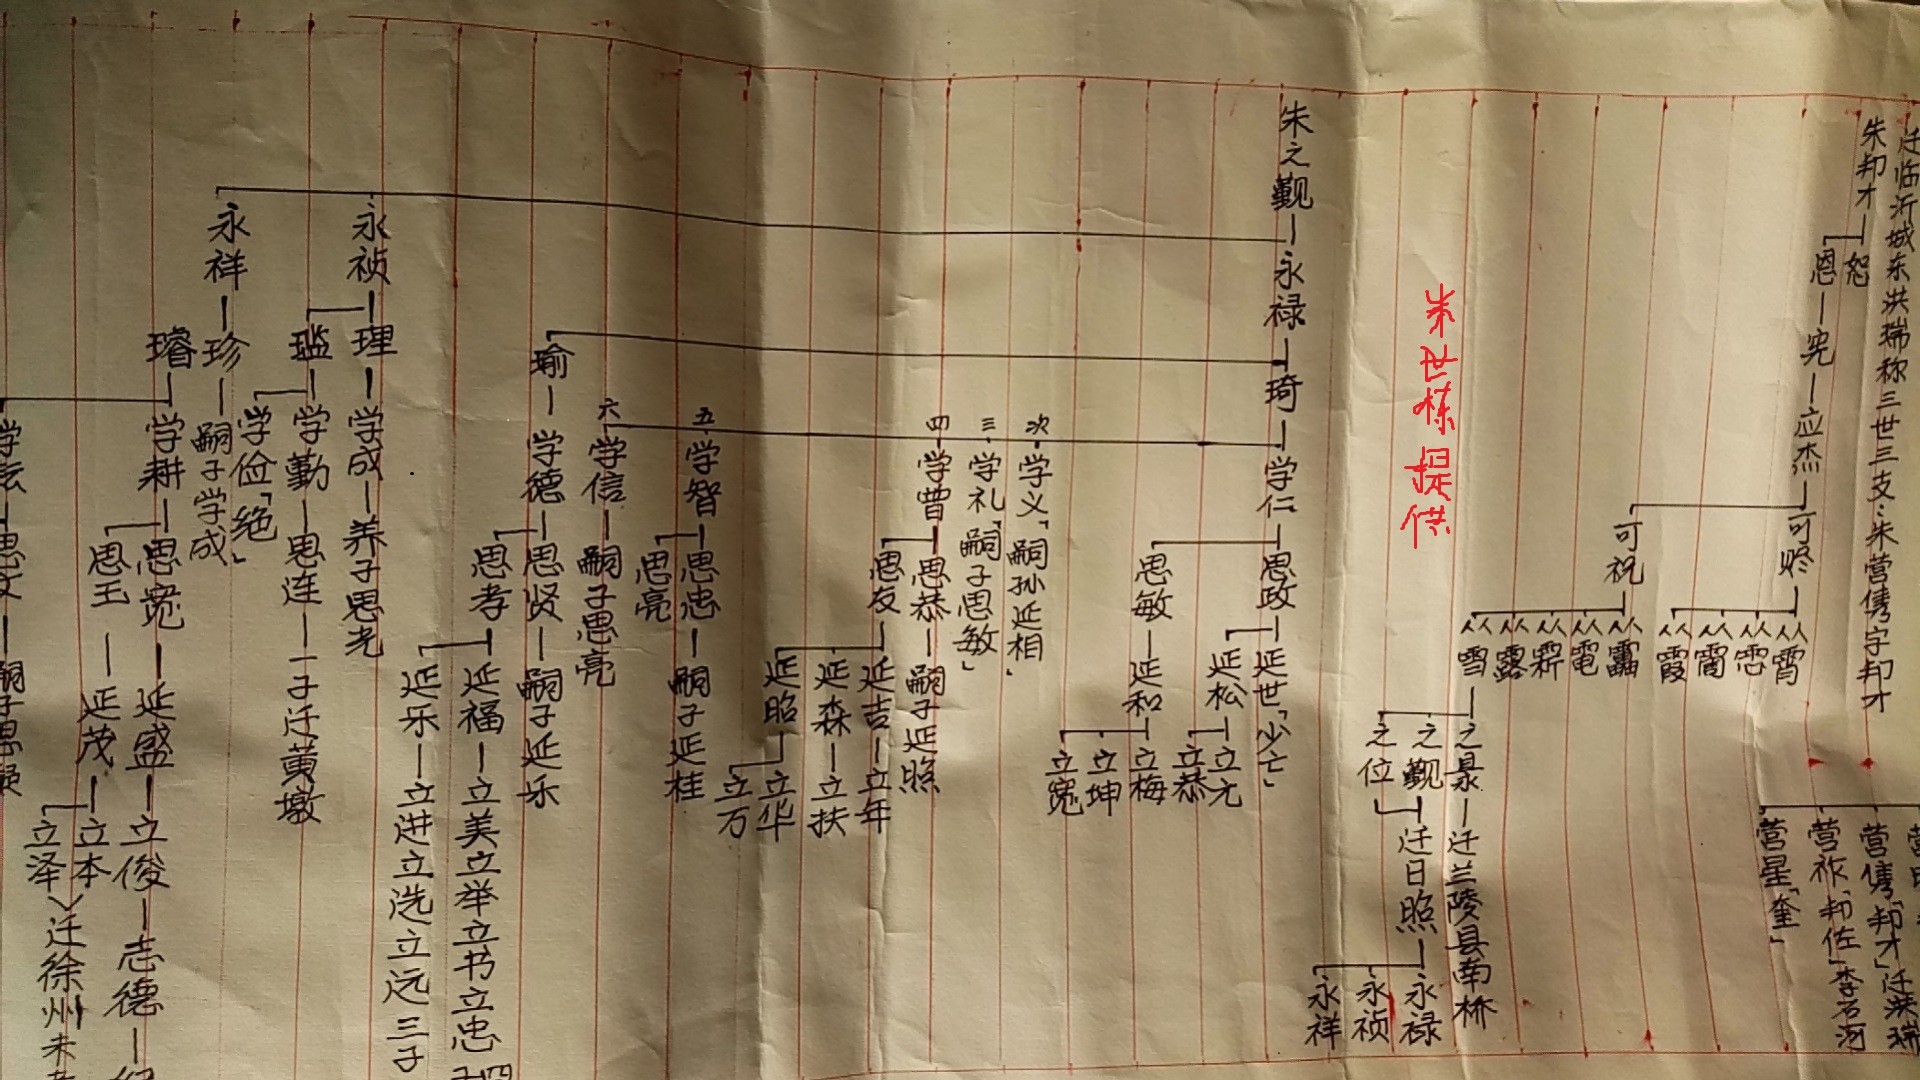 迁临沂城东洪瑞称三世三支：朱营儁字邦才
朱邦才
恕
恩
宪
应杰
可
可祝
霄
霞
露
電
雪
营儁「邦才」迁洪瑞
营祚「邦佐」李石河
营星「奎」
之
迁兰陵县南桥
之觐
之位
迁日照
永禄
永祯
永祥
朱世栋提供
朱之觐
永禄
琦
学仁
思政
延世「少亡」
延松
立元
立恭
思敏
延和
立梅
立坤
立宽
次学义「嗣孙延相」
三学礼「嗣子思敏」
四学曾
思恭
嗣子延照
思友
延吉
立年
延森
立扶
延昭
立华
立万
五学智
思忠
嗣子延桂
思亮
六学信
嗣子思亮
瑜
学德
思贤
嗣子延乐
思孝
延福
立美立举立书立忠四子
延乐
立进立选立远三子
永祯
理
学成
养子思光
学勤
思连
一子迁黄墩
学俭「绝」
永祥
珍
嗣子学成
璿
学耕
思宽
延盛
立俊
志德
思玉
延茂
立本
立泽
迁徐州未
思文